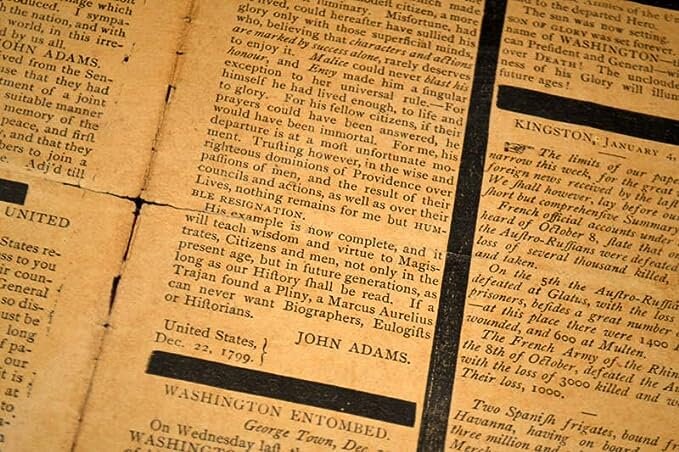 oduced, I sympa-
the nation, and with
world, in this irre-
by us all.
JOHN ADAMS.
ved from the Sen-
use that they had
tment of a joint
suitable manner
memory of the
peace, and first
y, and that they
bers to join a
e. Adj'd till
UNITED
States re-
ess to you
ir coun-
General
so dis-
ust be
long
f pa-
our
it is
at
to
lived, could hereafter have sullied his
glory only with those superficial minds,
who, believing that characters and actions
are marked by success alone, rarely deserves
to enjoy it. Malice could never blast his
honour, and Envy made him a singular
exception to her universal rule.—For
himself he had lived enough, to life and
to glory. For his fellow citizens, if their
prayers could have been answered, he
would have been immortal. For me, his
departure is at a most unfortunate mo-
ment. Trusting however, in the wise and
righteous dominions of Providence over
passions of men, and the result of their
councils and actions, as well as over their
Lives, nothing remains for me but HUM-
BLE RESIGNATION.
His example is now complete, and it
will teach wisdom and virtue to Magis-
trates, Citizens and men, not only in the
present age, but in future generations, as
long as our History ſhall be read. If a
Trajan found a Pliny, a Marcus Aurelius
can never want Biographers, Eulogiſts
or Hiſtorians.
JOHN ADAMS.
United States, }
Dec. 22, 1709. }
WASHINGTON ENTOMBED.
George Town, Dec.
On Wednesday laſt
WASHINGTON
to the departed Hero.
The sun was now setting.
SON OF GLORY was set forever.
name of WASHINGTON—
can Preſident and General—
over DEATH! The unclouded
ness of his Glory will illum
future ages!
KINGSTON, JANUARY 4,
The limits of our pape
narrow this week, for the great
foreign news received by the laſt
We ſhall however, lay before our
ſhort but comprehenſive Summary
French official accounts under
heard of October 8, ſtate that
the Auſtro-Ruſſians were defeated
loſs of ſeveral thouſand killed,
and taken.
On the 5th the Auſtro-Ruſſia
defeated at Glatus, with the loſs
prisoners, beſides a great number
—at this place there were 1400
wounded, and 600 at Multen.
The French Army of the Rhin
the 8th of October, defeated the Au
with the loſs of 3000 killed and w
Their loſs, 1000.
Two Spaniſh frigates, bound fr
Havanna, having on board
three million and
Merch